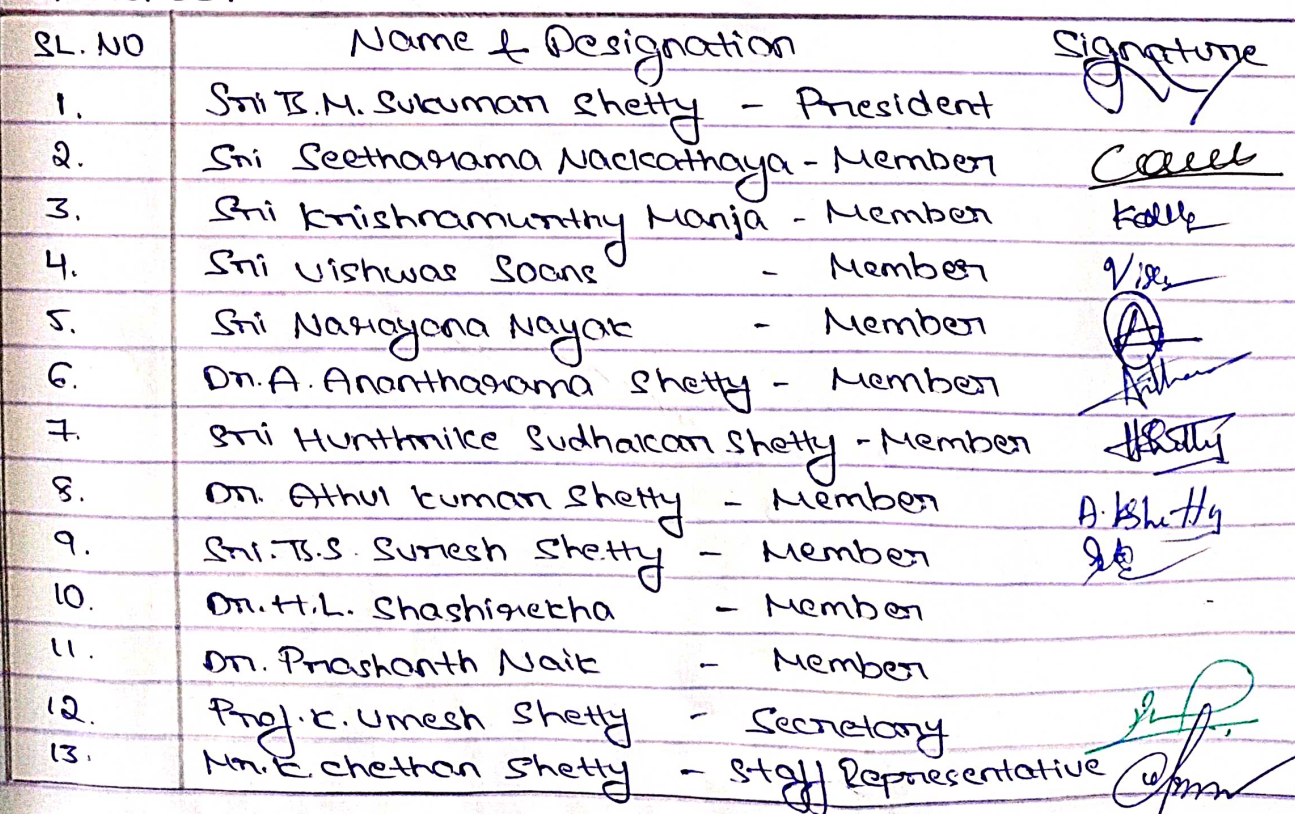 SL. NO Name & Designation Signature
1. Sri B.M. Sukumar Shetty - President
2. Sri Seetharama Nackathaya - Member
3. Sri Krishnamurthy Manja - Member
4. Sri Vishwas Soans - Member
5. Sri Narayana Nayak - Member
6. Dr. A. Anantharama Shetty - Member
7. Sri Hunthrike Sudhakar Shetty - Member HShetty
8. Dr. Athul Kumar Shetty - Member A.KShetty
9. Sri. B.S. Suresh Shetty - Member
10. Dr. H.L. Shashirekha - Member
11. Dr. Prashanth Naik - Member
12. Prof. K. Umesh Shetty - Secretary
13. Mr. K chethan Shetty - Staff Representative